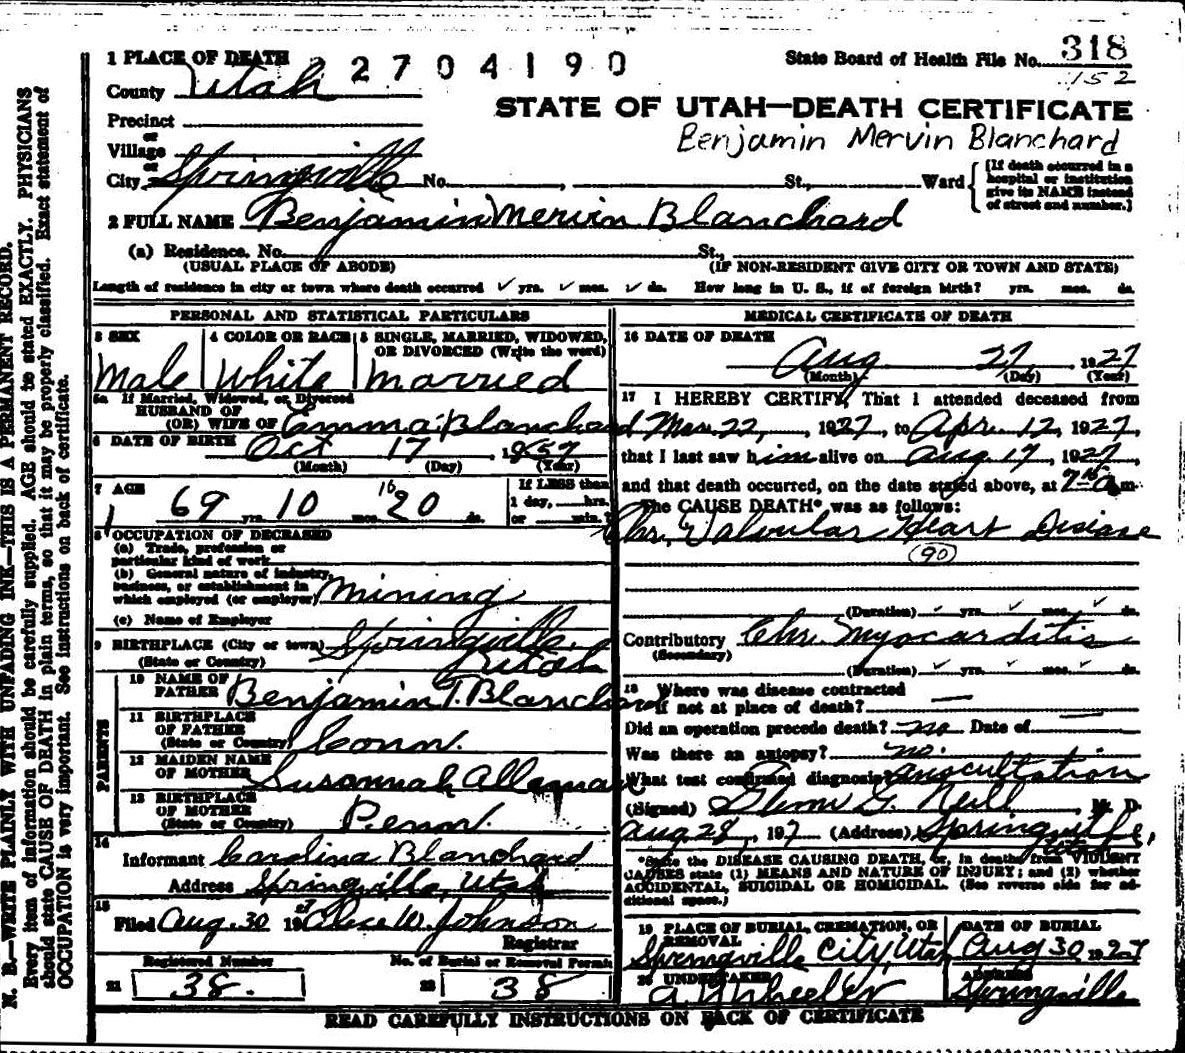 1 PLACE OF DEATH 2 2 7 0 4 1 9 0
State Board of Health File No. 318
152
County Utah
STATE OF UTAH—DEATH CERTIFICATE
Precinct
or
Benjamin Mervin Blanchard
Village
or
City Springville No. , St., Ward
(If death occurred in a hospital or institution give its NAME instead of street and number.)
2 FULL NAME Benjamin Mervin Blanchard
(a) Residence. No. St.,
(USUAL PLACE OF ABODE) (IF NON-RESIDENT GIVE CITY OR TOWN AND STATE)
Length of residence in city or town where death occurred ✓ yrs. ✓ mos. ✓ ds. How long in U. S., if of foreign birth? yrs. mos. ds.
PERSONAL AND STATISTICAL PARTICULARS
3 SEX 4 COLOR OR RACE 5 SINGLE, MARRIED, WIDOWED, OR DIVORCED (Write the word)
Male White Married
5a If Married, Widowed, or Divorced
HUSBAND OF
(OR) WIFE OF Emma Blanchard
6 DATE OF BIRTH Oct 17, 1857
(Month) (Day) (Year)
7 AGE If LESS than
69 yrs. 10 mos. 10 20 ds. 1 day, hrs.
or min.?
8 OCCUPATION OF DECEASED
(a) Trade, profession or
particular kind of work
(b) General nature of industry,
business, or establishment in
which employed (or employer) Mining
(c) Name of Employer
9 BIRTHPLACE (City or town) Springville,
(State or Country) Utah
PARENTS
10 NAME OF
FATHER Benjamin T. Blanchard
11 BIRTHPLACE
OF FATHER
(State or Country) Conn.
12 MAIDEN NAME
OF MOTHER Susannah Alleman
13 BIRTHPLACE
OF MOTHER
(State or Country) Penn.
14
Informant Carolina Blanchard
Address Springville, Utah
15
Filed Aug. 30 1927 Alice W. Johnson
Registrar
Registered Number No. of Burial or Removal Permit
21 38. 22 38
MEDICAL CERTIFICATE OF DEATH
16 DATE OF DEATH
Aug 27 1927
(Month) (Day) (Year)
17 I HEREBY CERTIFY, That I attended deceased from
Mar. 22, 1927, to Apr. 12, 1927,
that I last saw him alive on Aug 17, 1927,
and that death occurred, on the date stated above, at 7 a m.
The CAUSE DEATH* was as follows:
Chr. Valvular Heart Disease
(90)
(Duration) ✓ yrs. ✓ mos. ✓ ds.
Contributory Chr. Myocarditis
(Secondary)
(Duration) ✓ yrs. ✓ mos. ✓ ds.
18 Where was disease contracted
if not at place of death? —
Did an operation precede death? no Date of —
Was there an autopsy? no.
What test confirmed diagnosis auscultation
(Signed) Glenn G. Neill, M. D.
Aug 28, 1927 (Address) Springville,
Utah
*State the DISEASE CAUSING DEATH, or, in deaths from VIOLENT
CAUSES state (1) MEANS AND NATURE OF INJURY; and (2) whether
ACCIDENTAL, SUICIDAL OR HOMICIDAL. (See reverse side for ad-
ditional space.)
19 PLACE OF BURIAL, CREMATION, OR REMOVAL DATE OF BURIAL
Springville City, Utah Aug 30 1927
20 UNDERTAKER ADDRESS
A. Y. Wheeler Springville
READ CAREFULLY INSTRUCTIONS ON BACK OF CERTIFICATE
N. B.—WRITE PLAINLY WITH UNFADING INK—THIS IS A PERMANENT RECORD.
Every item of information should be carefully supplied. AGE should be stated EXACTLY. PHYSICIANS
should state CAUSE OF DEATH in plain terms, so that it may be properly classified. Exact statement of
OCCUPATION is very important. See instructions on back of certificate.